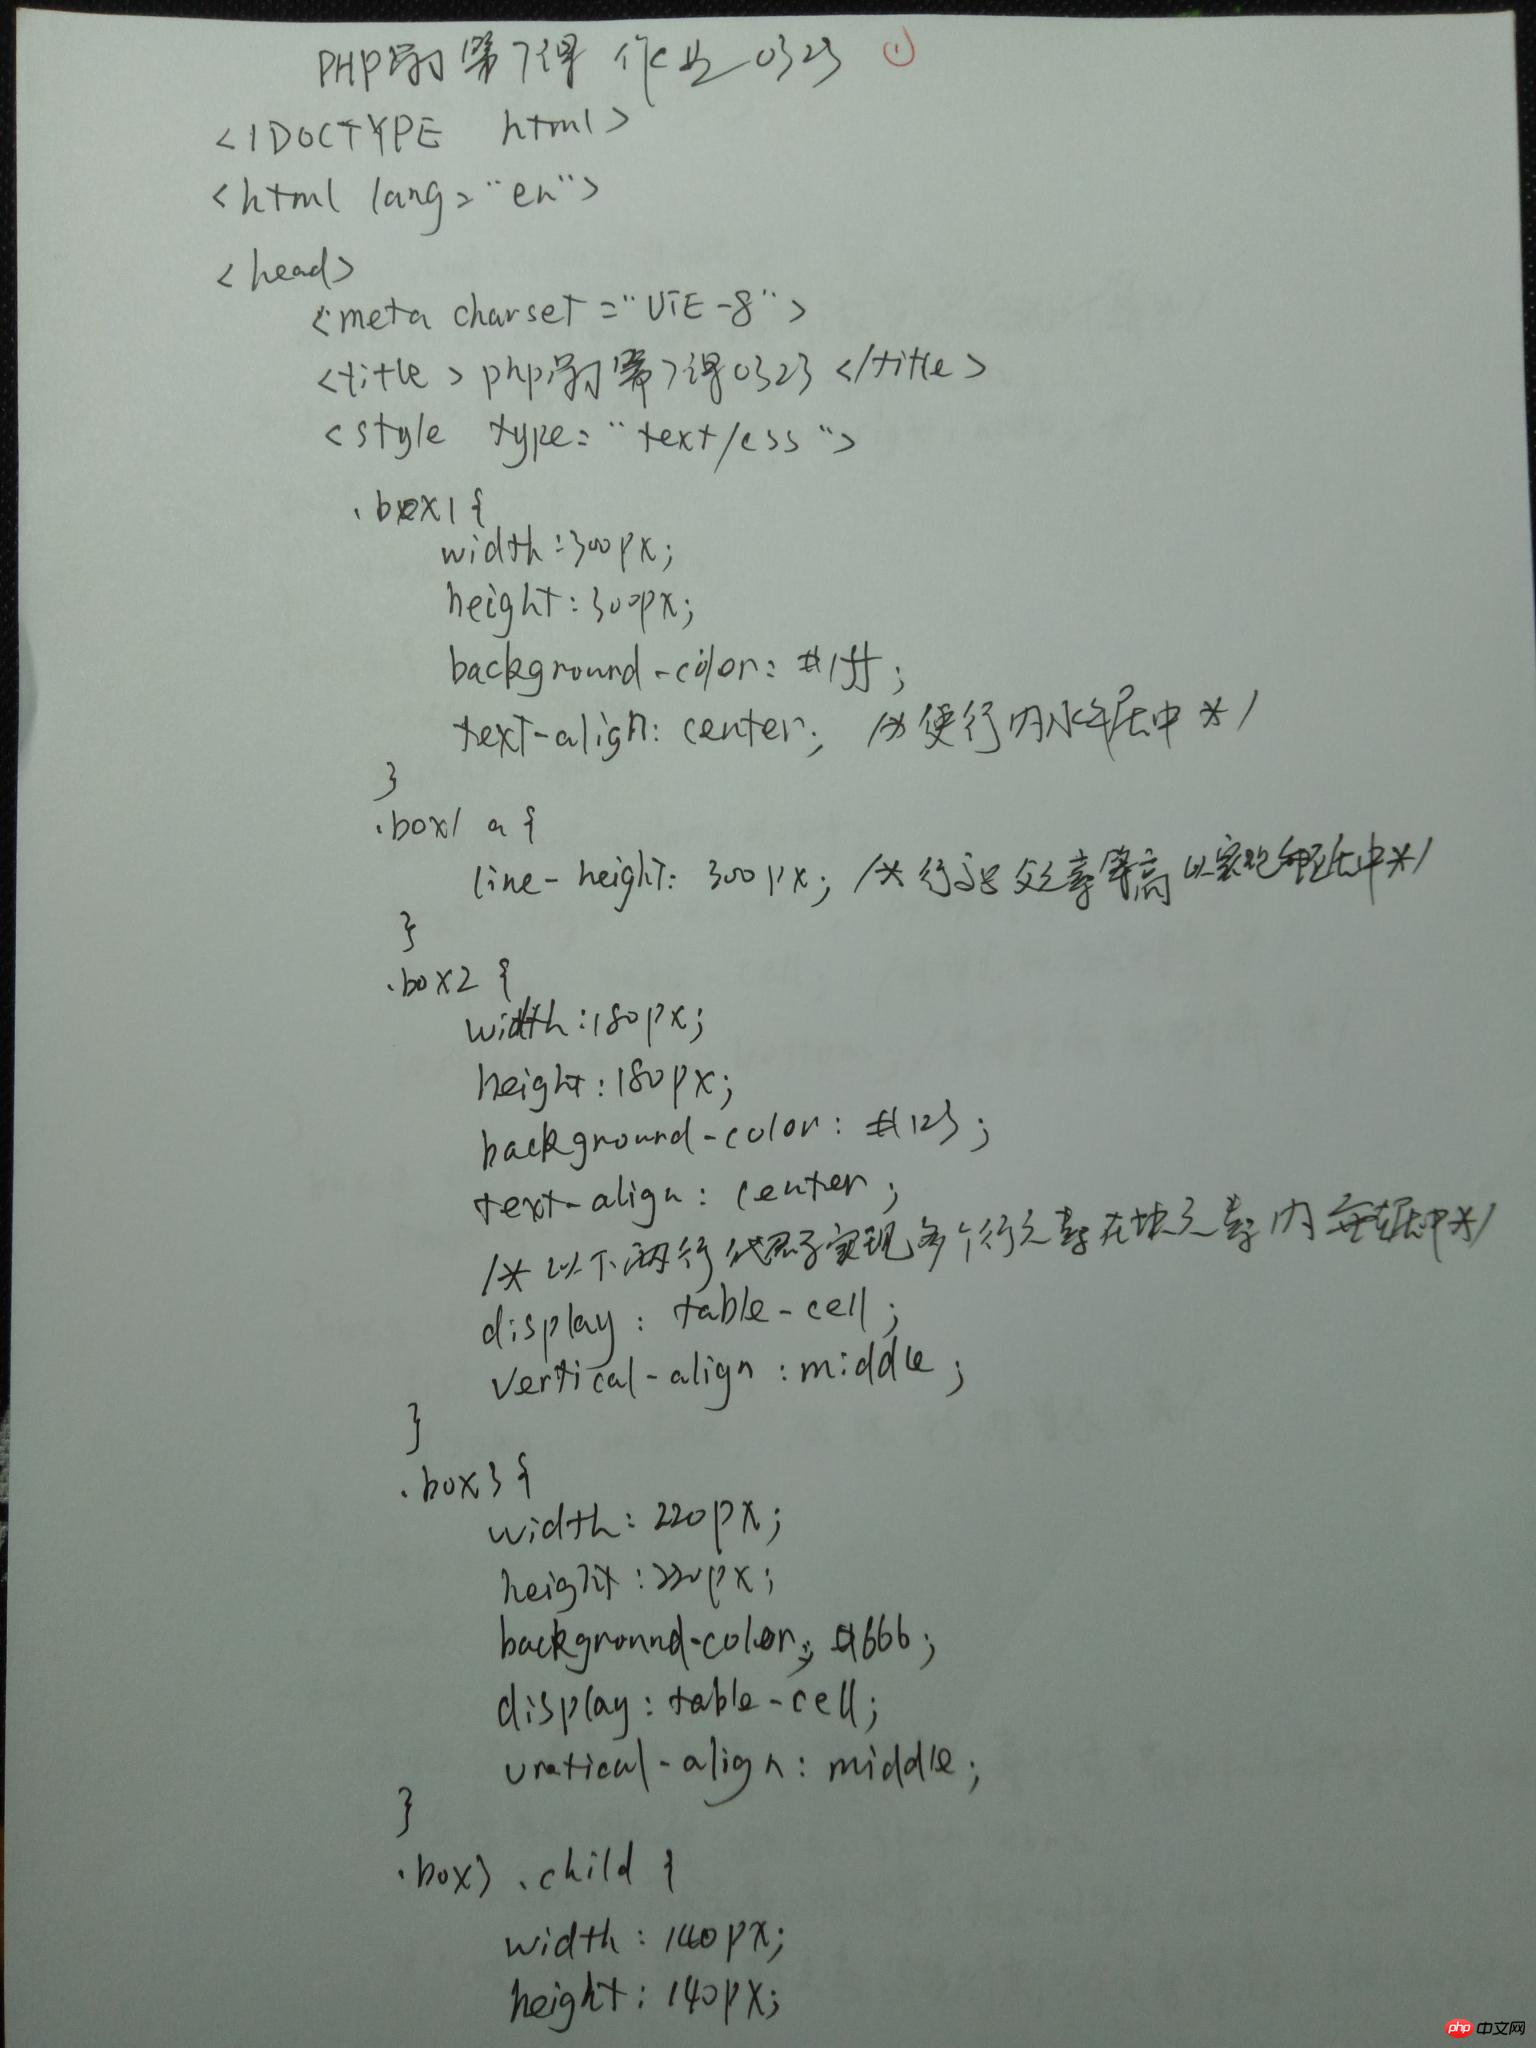 PHP学习第7课 作业0323 ①
<!DOCTYPE html>
<html lang="en">
<head>
<meta charset="UTF-8">
<title>php学习第7课0323</title>
<style type="text/css">
.box1{
width:300px;
height:300px;
background-color:#1ff;
text-align:center; /*使行内水平居中*/
}
.box1 a{
line-height:300px; /*行高与父元素等高以实现垂直居中*/
}
.box2{
width:180px;
height:180px;
background-color:#123;
text-align:center;
/*以下两行代码实现多个行元素在块元素内垂直居中*/
display:table-cell;
vertical-align:middle;
}
.box3{
width:220px;
height:220px;
background-color:#666;
display:table-cell;
vratical-align:middle;
}
.box3 .child{
width:140px;
height:140px;
php 中文网